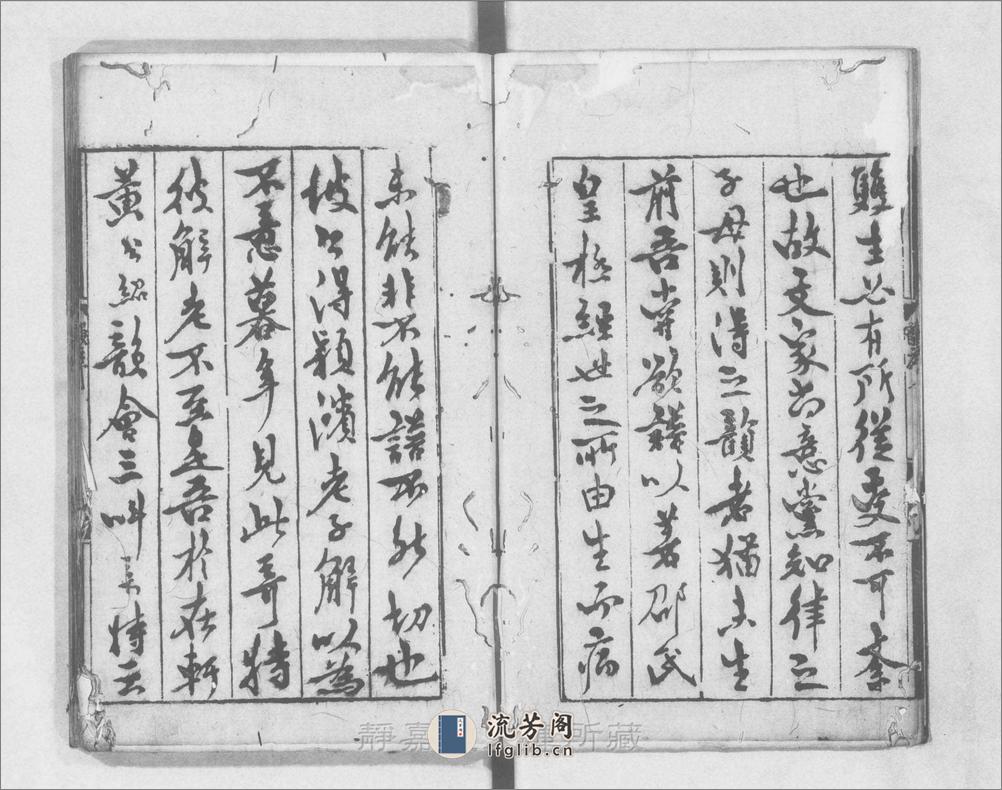 雙生必有所從變不可紊
也故文家尚意黨知律之
子母則得之韻者猶末生
前吾嘗欲釋以著邵氏
皇極經世之所由生而病
未能非不能諧不能切也
坡公得潁濱老子解以為
不意暮年見此奇特
彼解老不至是吾於在軒
黄公紹韻會三叫奇特云
静嘉堂文庫所藏
流芳阁
lfglib.cn